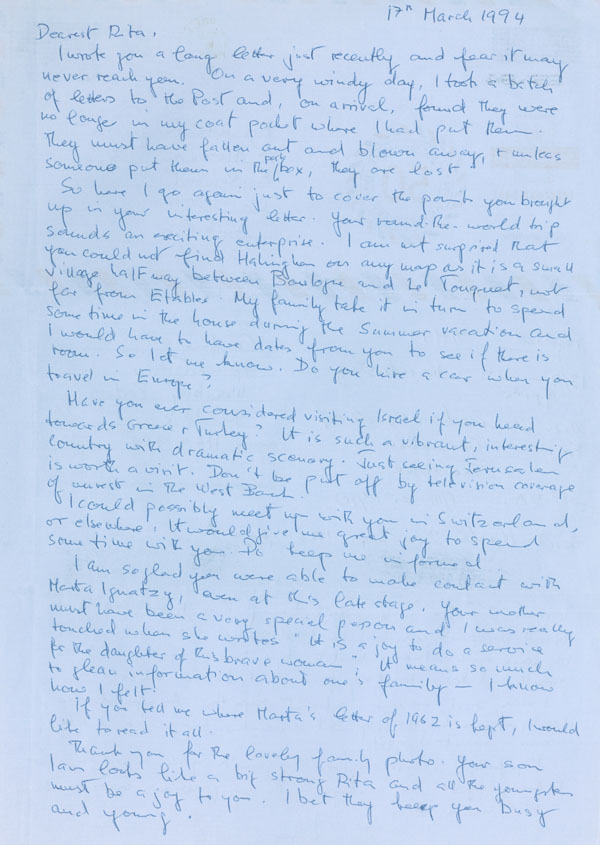 17th March 1994
Dearest Rita,
I wrote you a long letter just recently and fear it may
never reach you. On a very windy day, I took a batch
of letters to the Post and, on arrival, found they were
no longer in my coat pocket where I had put them.
They must have fallen out and blown away, + unless
someone put them in the post box, they are lost.
So here I go again just to cover the points you brought
up in your interesting letter. Your round-the-world trip
sounds an exciting enterprise. I am not surprised that
you could not find Halinghen on any map as it is a small
village half way between Boulogne and Le Touquet, not
far from Etaples. My family take it in turn to spend
some time in the house during the Summer vacation and
I would have to have dates from you to see if there is
room. So let me know. Do you hire a car when you
travel in Europe?
Have you ever considered visiting Israel if you head
towards Greece + Turkey? It is such a vibrant, interesting
country with dramatic scenery. Just seeing Jerusalem
is worth a visit. Don't be put off by television coverage
of unrest in the West Bank.
I could possibly meet up with you in Switzerland,
or elsewhere. It would give me great joy to spend
some time with you. Do keep me informed.
I am so glad you were able to make contact with
Marta Ignatzy, even at this late stage. Your mother
must have been a very special person and I was really
touched when she wrote "It is a joy to do a service
for the daughter of this brave woman". It means so much
to glean information about one's family — I know
how I felt!
If you tell me where Marta's letter of 1962 is kept, I would
like to read it all.
Thank you for the lovely family photo. Your son
Ian looks like a big strong Rita and all the youngsters
must be a joy to you. I bet they keep you busy
and young.